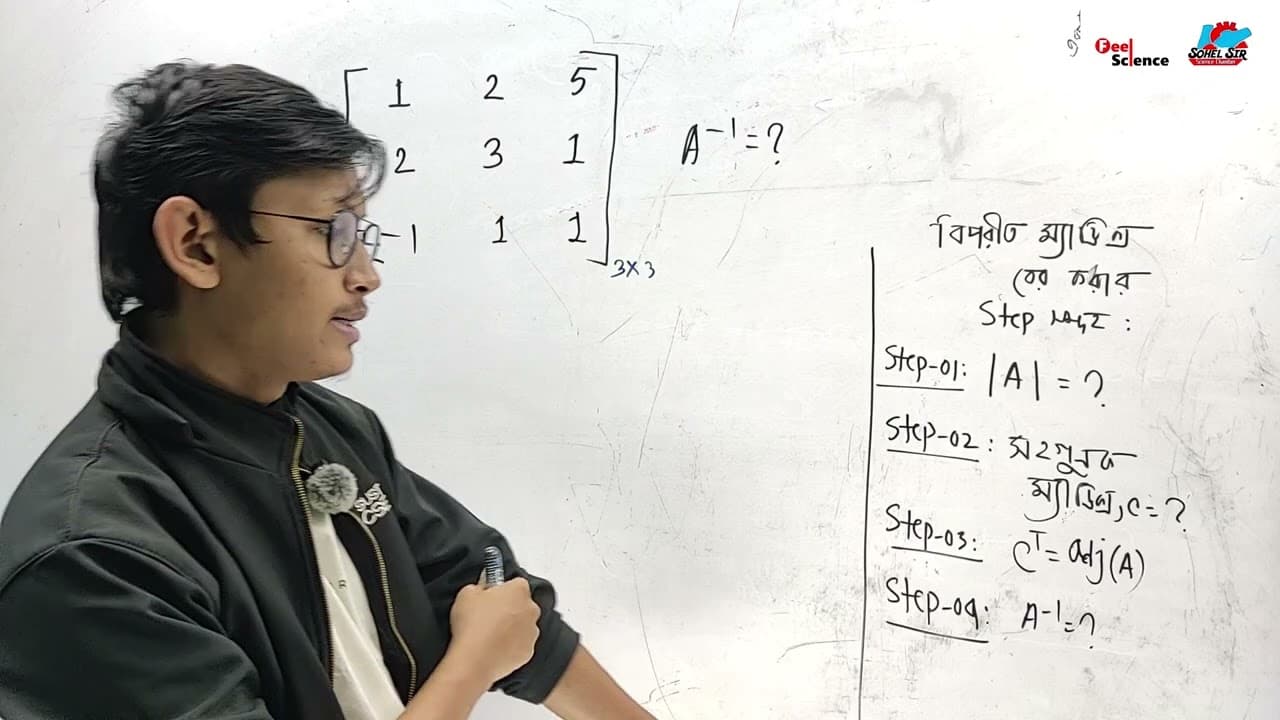 Feel Science
SOHEL SIR
Science Chamber
1 2 5
2 3 1
-1 1 1
3×3
A⁻¹ = ?
বিপরীত ম্যাট্রিক্স
বের করার
Step সমূহ :
Step-01: |A| = ?
Step-02: সহগুণক
ম্যাট্রিক্স, C = ?
Step-03: Cᵀ = adj(A)
Step-04: A⁻¹ = ?